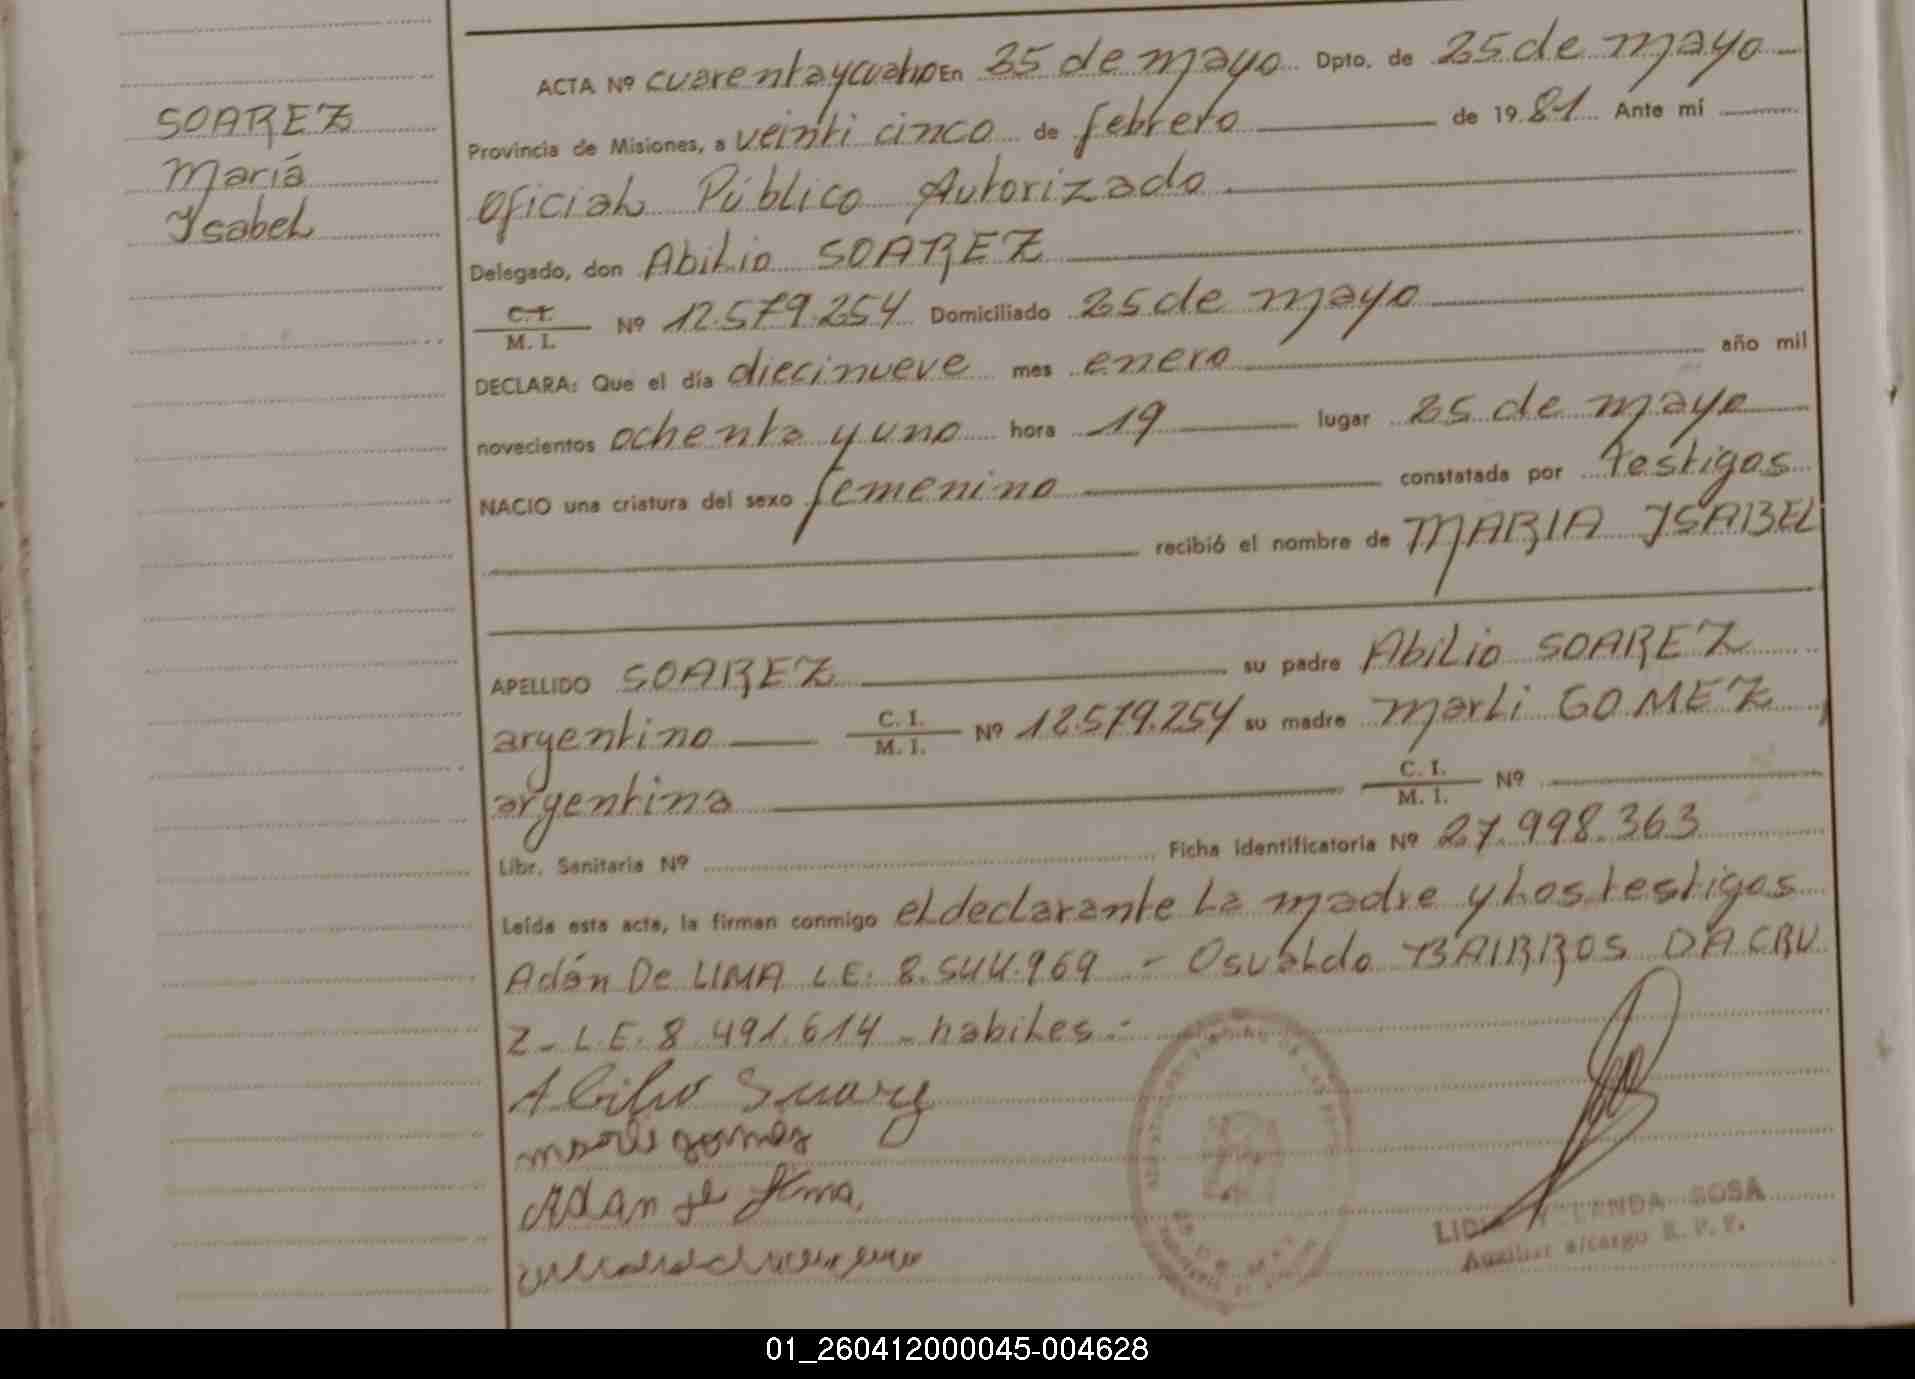 SOAREZ
Mariá
Ysabel
ACTA Nº cuarenta y cuatro En 25 de mayo Dpto. de 25 de mayo
Provincia de Misiones, a veinti cinco de febrero de 1981 Ante mí
Oficial Público Autorizado
Delegado, don Abilio SOAREZ
C. I.
M. I. Nº 12.579.254 Domiciliado 25 de mayo
DECLARA: Que el día diecinueve mes enero año mil
novecientos ochenta y uno hora 19 lugar 25 de mayo
NACIO una criatura del sexo femenino constatada por testigos
recibió el nombre de MARIA YSABEL
APELLIDO SOAREZ su padre Abilio SOAREZ
argentino C. I. M. I. Nº 12.579.254 su madre Marli GOMEZ
argentina C. I. M. I. Nº
Libr. Sanitaria Nº Ficha Identificatoria Nº 27.998.363
Leída esta acta, la firman conmigo el declarante La madre y Los testigos
Adán De LIMA L.E. 8.544.969 - Osvaldo BAIRROS DACRU
Z - L.E. 8.491.614 - habiles -
Abilio Suarez
marli gomez
Adan de lima
SOSA
Auxiliar a/cargo R. P. P.
01_260412000045-004628